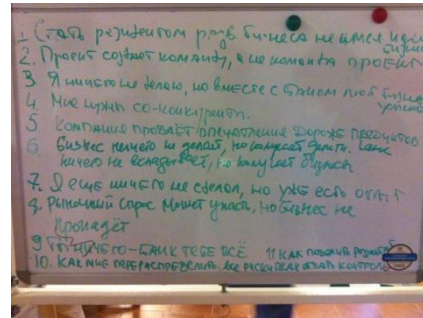 1. Стать резидентом разв. бизнеса не имея идеи бизнеса
2. Проект создает команду, а не команда проект
3. Я ничего не делаю, но вместе с банком мой бизнес
4. Мне нужны со-конкуренты.
5. Компания продаёт впечатления дороже продуктов
6. Бизнес ничего не делает, но получает деньги. Банк
ничего не вкладывает, но получает бизнес
7. Я еще ничего не сделал, но уже есть опыт
8. Рыночный спрос может упасть, но бизнес не
пропадёт
9 ТЫ НИЧЕГО - БАНК ТЕБЕ ВСЁ 11 КАК
10. КАК МНЕ ПЕРЕРАСПРЕДЕЛИТЬ все риски